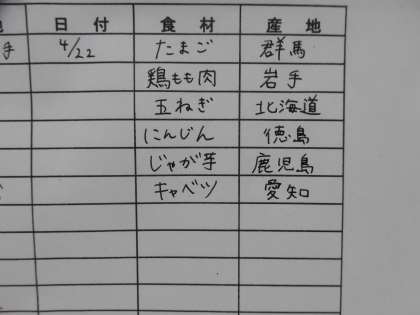 日付 食材 産地
手 4/22 たまご 群馬
鶏もも肉 岩手
玉ねぎ 北海道
にんじん 徳島
じゃが芋 鹿児島
キャベツ 愛知